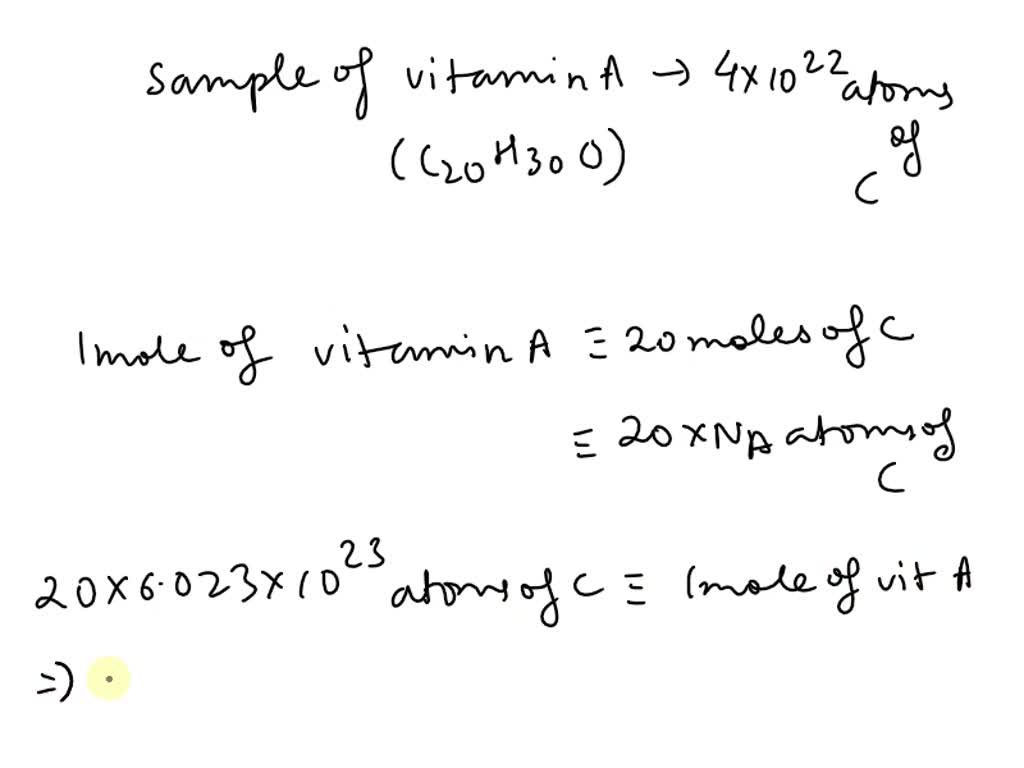 Sample of vitamin A → 4×10²² atoms of C
(C₂₀H₃₀O)
1mole of vitamin A ≡ 20 moles of C
≡ 20×N_A atoms of C
20×6.023×10²³ atoms of C ≡ 1mole of vit A
=)